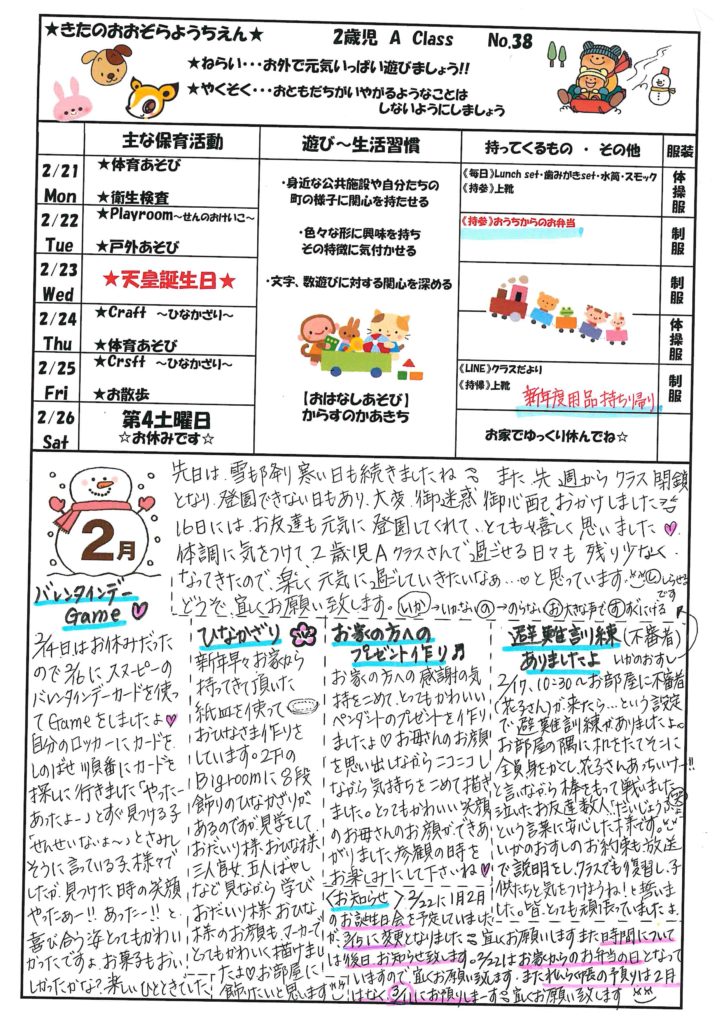 ★きたのおおぞらようちえん★ 2歳児 A Class No.38
★ねらい・・・お外で元気いっぱい遊びましょう!!
★やくそく・・・おともだちがいやがるようなことは
しないようにしましょう
主な保育活動 遊び～生活習慣 持ってくるもの ・ その他 服装
2/21 Mon
★体育あそび
★衛生検査
《毎日》Lunch set・歯みがきset・水筒・スモック
《持参》上靴
体操服
2/22 Tue
★Playroom～せんのおけいこ～
★戸外あそび
《持参》おうちからのお弁当
制服
2/23 Wed
★天皇誕生日★
制服
2/24 Thu
★Craft ～ひなかざり～
★体育あそび
体操服
2/25 Fri
★Crsft ～ひなかざり～
★お散歩
《LINE》クラスだより
《持帰》上靴
新年度用品持ち帰り
制服
2/26 Sat
第4土曜日
☆お休みです☆
お家でゆっくり休んでね☆
・身近な公共施設や自分たちの
町の様子に関心を持たせる
・色々な形に興味を持ち
その特徴に気付かせる
・文字、数遊びに対する関心を深める
【おはなしあそび】
からすのかあきち
2月
先日は、雪も降り寒い日も続きましたね また、先週からクラス閉鎖
となり、登園できない日もあり、大変、御迷惑、御心配をおかけしました
16日には、お友達も元気に登園してくれて、とても嬉しく思いました♥
体調に気をつけて、2歳児Aクラスさんで過ごせる日々も残り少なく
なってきたので、楽しく元気に過ごしていきたいなぁ…♡と思っています。
どうぞ、宜しくお願い致します。
いか→いかない の→のらない お大きな声で すすぐにげる ししらせる です
バレンタインデー
Game♥
2/14日はお休みだった
ので2/16に、スヌーピーの
バレンタインデーカードを使っ
てGameをしましたよ♥
自分のロッカーにカードを
しのばせ順番にカードを
探しに行きました「やったー
あったよー」とすぐ見つける子
「せんせいないよ～」とさみし
そうに言っている子、様々で
したが、見つけた時の笑顔
やったあー!! あったー!! と
喜び合う姿とてもかわい
かったですよ。お菓子もおい
しかったかな?楽しいひとときでした
ひなかざり
新年早々お家から
持ってきて頂いた
紙皿を使って
おひなさま作りを
しています。2Fの
Bigroomに8段
飾りのひなかざりが
あるのですが、見学をして
おだいり様、おひな様
三人官女、五人ばやし
など見ながら学び
おだいり様、おひな
様のお顔もマーカーで
とてもかわいく描けまし
たよ♥お部屋に
飾りたいと思います
お家の方への
プレゼント作り♬
お家の方への感謝の気
持をこめて、とってもかわいい
ペンダントのプレゼントを作り
ましたよ♡お母さんのお顔
を思い出しながらニコニコし
ながら気持ちをこめて描き
ました。とってもかわいい笑顔
のお母さんのお顔ができあ
がりました参観の時を
お楽しみにして下さいね♥
避難訓練(不審者)
ありましたよ いかのおすし
2/17、10:30～お部屋に不審者
(花子さん)が来たら…という設定
で避難訓練がありましたよ。
お部屋の隅に机をたてそこに
全員身をかくし、花子さんあっちいけー!!
と言いながら棒をもって戦いました
泣いたお友達数人!!だいじょうぶ
という言葉に安心した様です。
いかのおすしのお約束も放送
で説明をし、クラスでも復習し、子
供たちと気をつけようね!と誓いま
した。皆、とても頑張っていましたよ
〈お知らせ〉 2/22に1月2月
のお誕生日会を予定していました
が、3/15に変更となりました 宜しくお願いしますまた時間について
は後日、お知らせ致します。2/22はお家からのお弁当の日となって
いますので宜しくお願い致します。また、 の預りは2月
はなく3/11にお預りしまーす 宜しくお願い致します